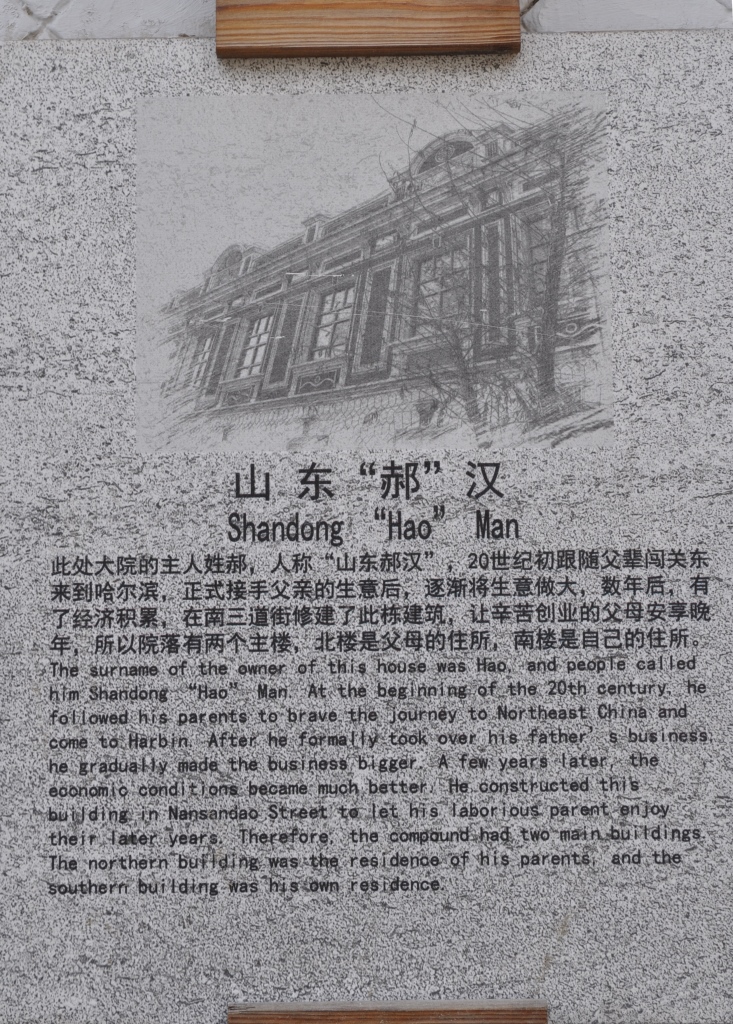 山东“郝”汉
Shandong “Hao” Man
此处大院的主人姓郝，人称“山东郝汉”，20世纪初跟随父辈闯关东
来到哈尔滨，正式接手父亲的生意后，逐渐将生意做大，数年后，有
了经济积累，在南三道街修建了此栋建筑，让辛苦创业的父母安享晚
年，所以院落有两个主楼，北楼是父母的住所，南楼是自己的住所。
The surname of the owner of this house was Hao, and people called
him Shandong “Hao” Man. At the beginning of the 20th century, he
followed his parents to brave the journey to Northeast China and
come to Harbin. After he formally took over his father’s business,
he gradually made the business bigger. A few years later, the
economic conditions became much better. He constructed this
building in Nansandao Street to let his laborious parent enjoy
their later years. Therefore, the compound had two main buildings.
The northern building was the residence of his parents, and the
southern building was his own residence.